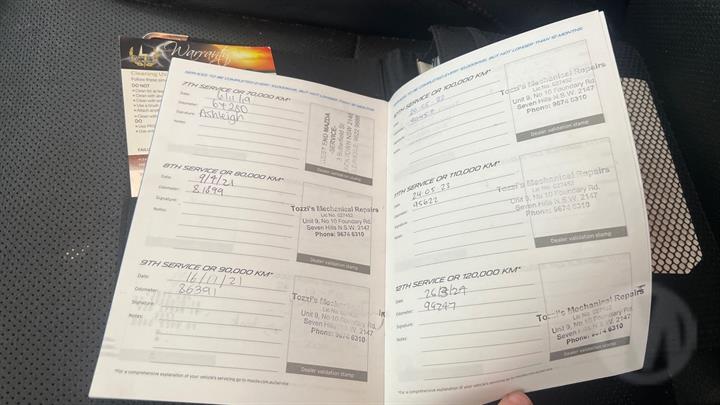 Warranty
Cleaning
DO NOT
SERVICE TO BE COMPLETED EVERY 10,000KMS, BUT NOT LONGER THAN 12 MONTHS
7TH SERVICE OR 70,000 KM*
Date: 6/11/19
Odometer:
Signature: Ashleigh
Notes:
WEST END MAZDA
-SERVICE-
Dealer validation stamp
8TH SERVICE OR 80,000 KM*
Date: 9/4/21
Odometer: 81899
Signature:
Notes:
Tozzi's Mechanical Repairs
Lic No. 027452
Unit 9, No 10 Foundary Rd.
Seven Hills N.S.W. 2147
Phone: 9674 6310
Dealer validation stamp
9TH SERVICE OR 90,000 KM*
Date: 16/11/21
Odometer: 86391
Signature:
Notes:
Tozzi's Mechanical
Unit 9, No 10 Foundary Rd.
Seven Hills N.S.W. 2147
Phone: 9674 6310
Dealer validation stamp
*For a comprehensive explanation of your vehicle's servicing go to mazda.com.au/service
SERVICE TO BE COMPLETED EVERY 10,000KMS, BUT NOT LONGER THAN 12 MONTHS
10TH SERVICE OR 100,000 KM*
Tozzi's Mechanical Repairs
Lic No. 027452
Unit 9, No 10 Foundary Rd.
Seven Hills N.S.W. 2147
Phone: 9674 6310
Dealer validation stamp
11TH SERVICE OR 110,000 KM*
Date: 24.05.23
95622
Notes:
Tozzi's Mechanical Repairs
Lic No. 027452
Unit 9, No 10 Foundary Rd.
Seven Hills N.S.W. 2147
Phone: 9674 6310
Dealer validation stamp
12TH SERVICE OR 120,000 KM*
Date: 26/3/24
Odometer: 99247
Signature:
Notes:
Tozzi's Mechanical Repairs
Lic No. 027452
Unit 9, No 10 Foundary Rd.
Seven Hills N.S.W. 2147
Phone: 9674 6310
Dealer validation stamp
*For a comprehensive explanation of your vehicle's servicing go to mazda.com.au/service